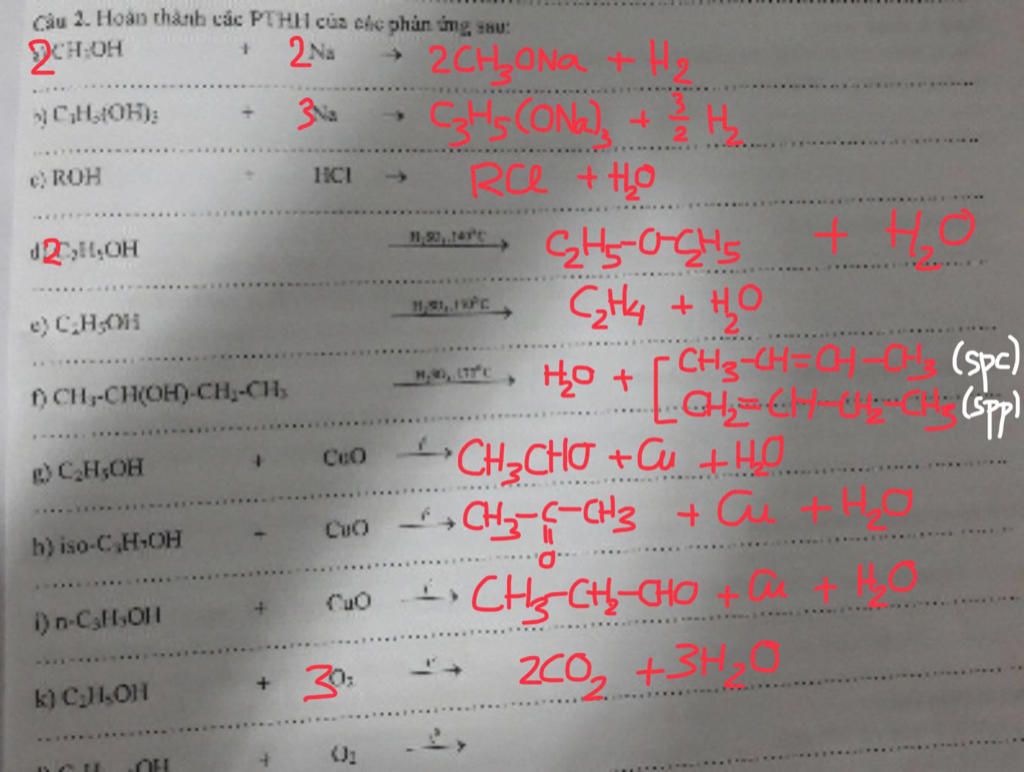 Câu 2. Hoàn thành các PTHH của các phản ứng sau:
2 CH3OH + 2 Na → 2CH3ONa + H2
b) C3H5(OH)3 + 3 Na → C3H5(ONa)3 + 3/2 H2
c) ROH + HCl → RCl + H2O
d) 2 C2H5OH H2SO4, 140°C → C2H5-O-C2H5 + H2O
e) C2H5OH H2SO4, 170°C → C2H4 + H2O
f) CH3-CH(OH)-CH2-CH3 H2SO4, 177°C → H2O + [ CH3-CH=CH-CH3 (spc)
CH2=CH-CH2-CH3 (spp)
g) C2H5OH + CuO t° → CH3CHO + Cu + H2O
h) iso-C3H7OH + CuO t° → CH3-C-CH3 + Cu + H2O
O
i) n-C3H7OH + CuO t° → CH3-CH2-CHO + Cu + H2O
k) C2H5OH + 3 O2 t° → 2CO2 + 3H2O
OH + O2 t° →